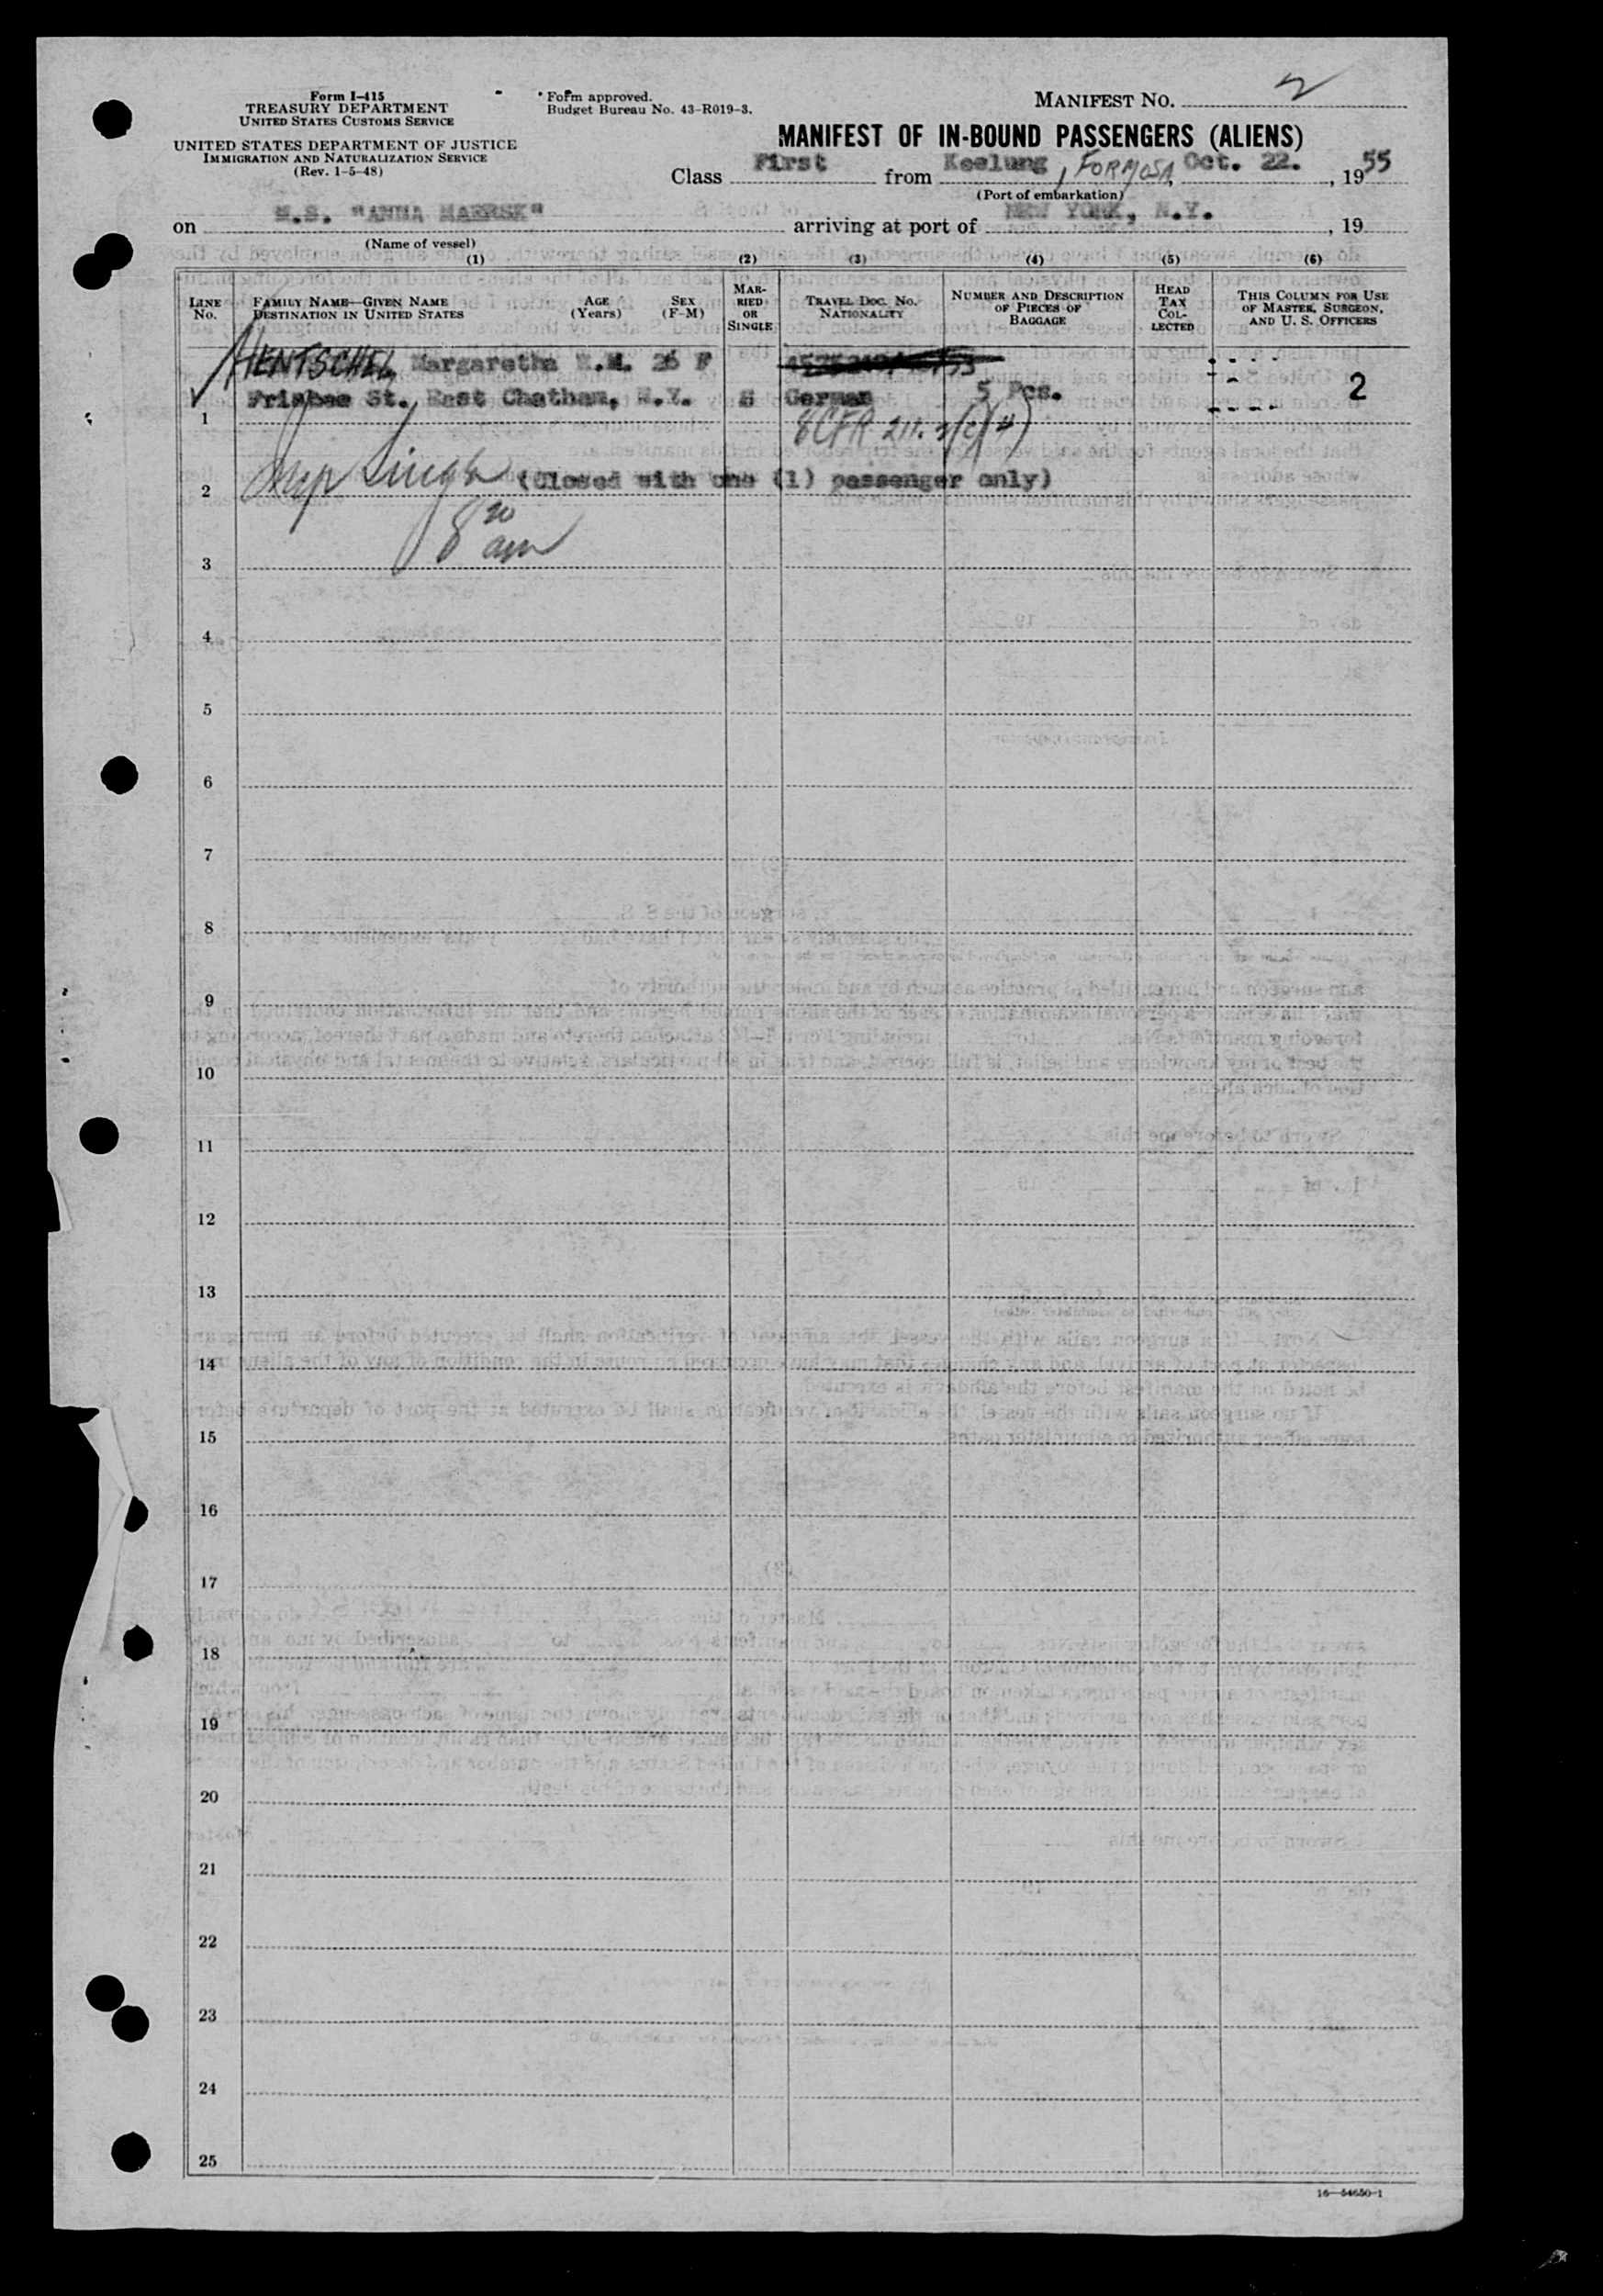 Form I-415
TREASURY DEPARTMENT
UNITED STATES CUSTOMS SERVICE
UNITED STATES DEPARTMENT OF JUSTICE
IMMIGRATION AND NATURALIZATION SERVICE
(Rev. 1-5-48)
Form approved.
Budget Bureau No. 43-R019-3.
MANIFEST NO. 2
MANIFEST OF IN-BOUND PASSENGERS (ALIENS)
Class First from Keelung, FORMOSA, Oct. 22., 1955
(Port of embarkation)
on M.S. "ANNA MAERSK" arriving at port of NEW YORK, N.Y., 19
(Name of vessel)
(1) (2) (3) (4) (5) (6)
LINE No.
FAMILY NAME—GIVEN NAME
DESTINATION IN UNITED STATES
AGE (Years)
SEX (F-M)
MARRIED OR SINGLE
TRAVEL DOC. NO.
NATIONALITY
NUMBER AND DESCRIPTION OF PIECES OF BAGGAGE
HEAD TAX COLLECTED
THIS COLUMN FOR USE OF MASTER, SURGEON, AND U. S. OFFICERS
HENTSCHEL Margaretha E.M. 26 F
Frisbee St., East Chatham, N.Y. S German 5 Pcs. 2
1
8CFR 211.
2 (Closed with one (1) passenger only)
8 20 am
3
4
5
6
7
8
9
10
11
12
13
14
15
16
17
18
19
20
21
22
23
24
25
16—54650-1